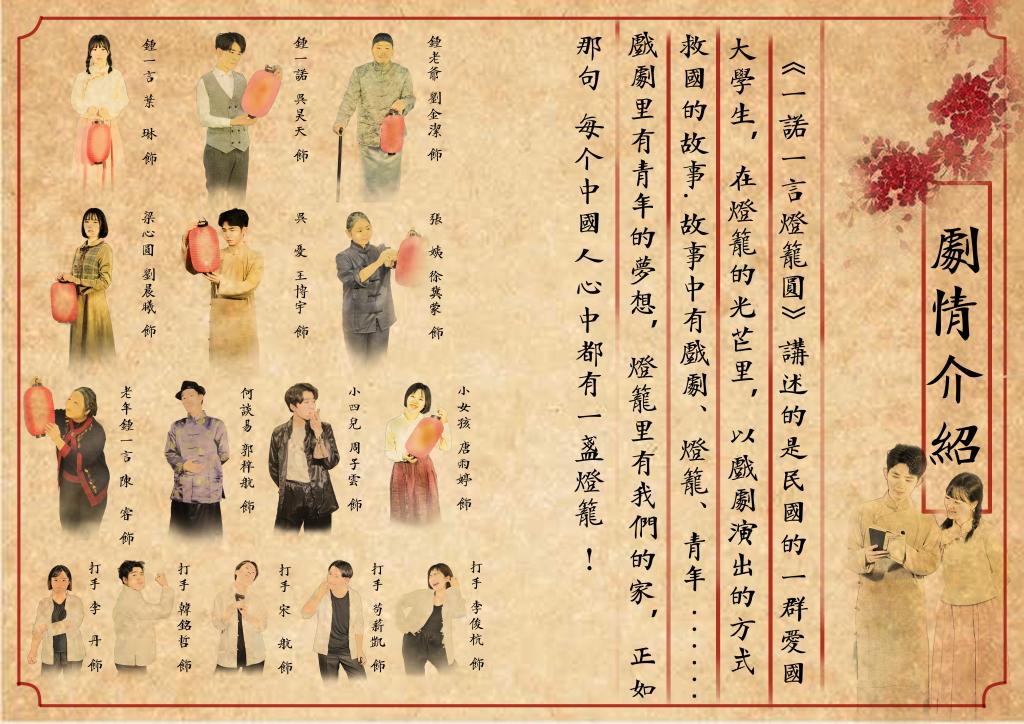 劇情介紹
《一諾一言燈籠圓》講述的是民國的一群愛國
大學生，在燈籠的光芒里，以戲劇演出的方式
救國的故事.故事中有戲劇、燈籠、青年.......
戲劇里有青年的夢想，燈籠里有我們的家，正如
那句 每个中國人心中都有一盞燈籠！
鍾老爺 劉金潔 飾
鍾一諾 吳昊天 飾
鍾一言 葉琳 飾
張姨 徐冀蒙 飾
吳憂 王博宇 飾
梁心圓 劉晨曦 飾
小女孩 唐雨婷 飾
小四兒 周子雲 飾
何談易 郭梓航 飾
老年鍾一言 陳睿 飾
打手 李俊杭 飾
打手 苟薪凱 飾
打手 宋航 飾
打手 韓銘哲 飾
打手 李丹 飾